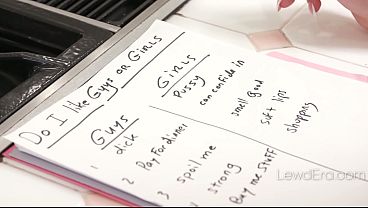 Do I like Guys or Girls
Guys
1 dick
2 Pay For dinner
3 spoil me
strong
Buy me stuff
Girls
Pussy
can confide in
smell Good
soft lips
shopping
LewdEra.com